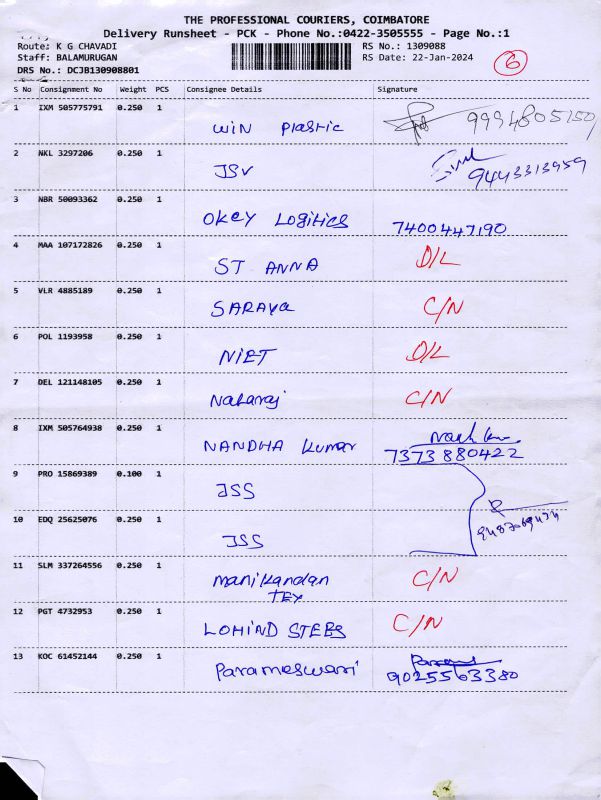 THE PROFESSIONAL COURIERS, COIMBATORE
Delivery Runsheet - PCK - Phone No.:0422-3505555 - Page No.:1
Route: K G CHAVADI RS No.: 1309088
Staff: BALAMURUGAN RS Date: 22-Jan-2024
DRS No.: DCJB130908801 6
S No Consignment No Weight PCS Consignee Details Signature
1 IXM 505775791 0.250 1
WIN Plastic 9994805150
2 NKL 3297206 0.250 1
JSV 9443313959
3 NBR 50093362 0.250 1
OKEY Logitics 7400447190
4 MAA 107172826 0.250 1
ST ANNA D/L
5 VLR 4885189 0.250 1
SARAYa C/N
6 POL 1193958 0.250 1
NIET D/L
7 DEL 121148105 0.250 1
Nataraj C/N
8 IXM 505764938 0.250 1
NANDHA Kumar 7373880422
9 PRO 15869389 0.100 1
JSS
10 EDQ 25625076 0.250 1
JSS
11 SLM 337264556 0.250 1
Manikandan C/N
TEX
12 PGT 4732953 0.250 1
LOHIND STEBS C/N
13 KOC 61452144 0.250 1
Parameswari 9025563380